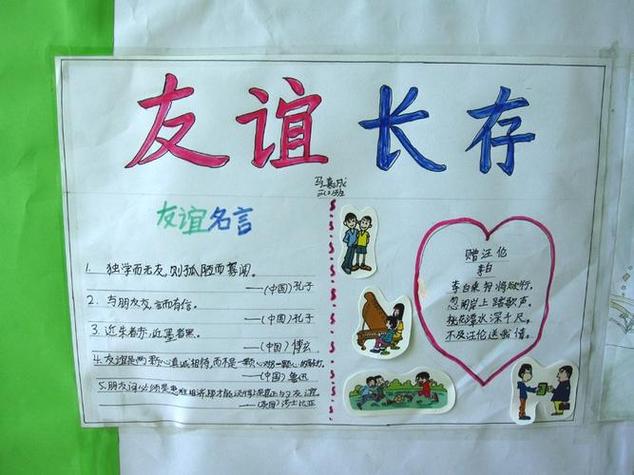 友谊长存
友谊名言
1. 独学而无友,则孤陋而寡闻。
——(中国)孔子
2. 与朋友交,言而有信。
——(中国)孔子
3. 近朱者赤,近墨者黑。
——(中国)傅玄
4. 友谊是两颗心真诚相待,而不是一颗心对另一颗心的敲打。
——(中国)鲁迅
5. 朋友间必须是患难相济,那才能
赠汪伦
李白
李白乘舟将欲行,
忽闻岸上踏歌声。
桃花潭水深千尺,
不及汪伦送我情。